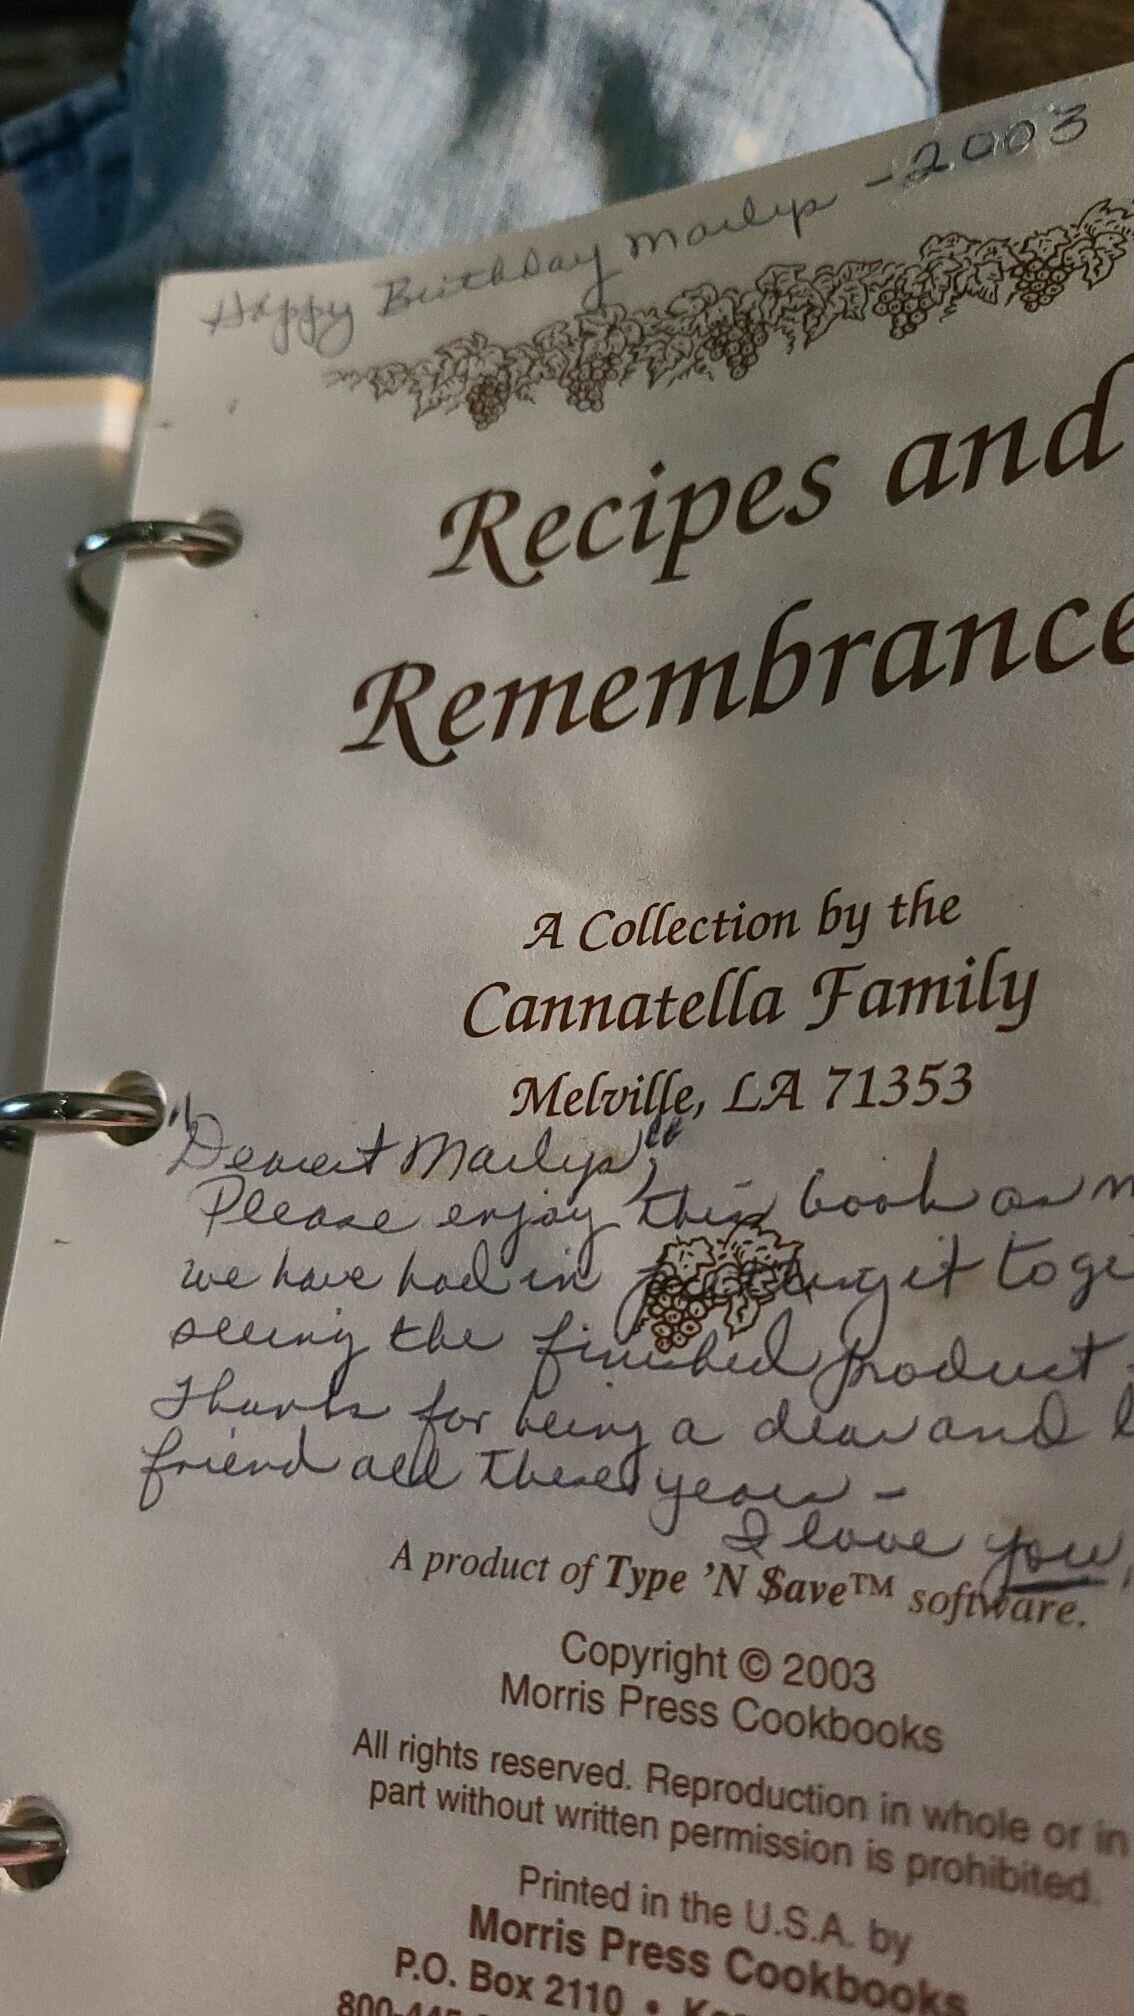 Happy Birthday Marlys - 2003
Recipes and
Remembrance
A Collection by the
Cannatella Family
Melville, LA 71353
"Dearest Marlys",
Please enjoy this book as
we have had in putting it
seeing the finished product
Thanks for being a dear and
friend all these years -
I love you,
A product of Type 'N $ave™ software.
Copyright © 2003
Morris Press Cookbooks
All rights reserved. Reproduction in whole or in
part without written permission is prohibited.
Printed in the U.S.A. by
Morris Press Cookbooks
P.O. Box 2110 •